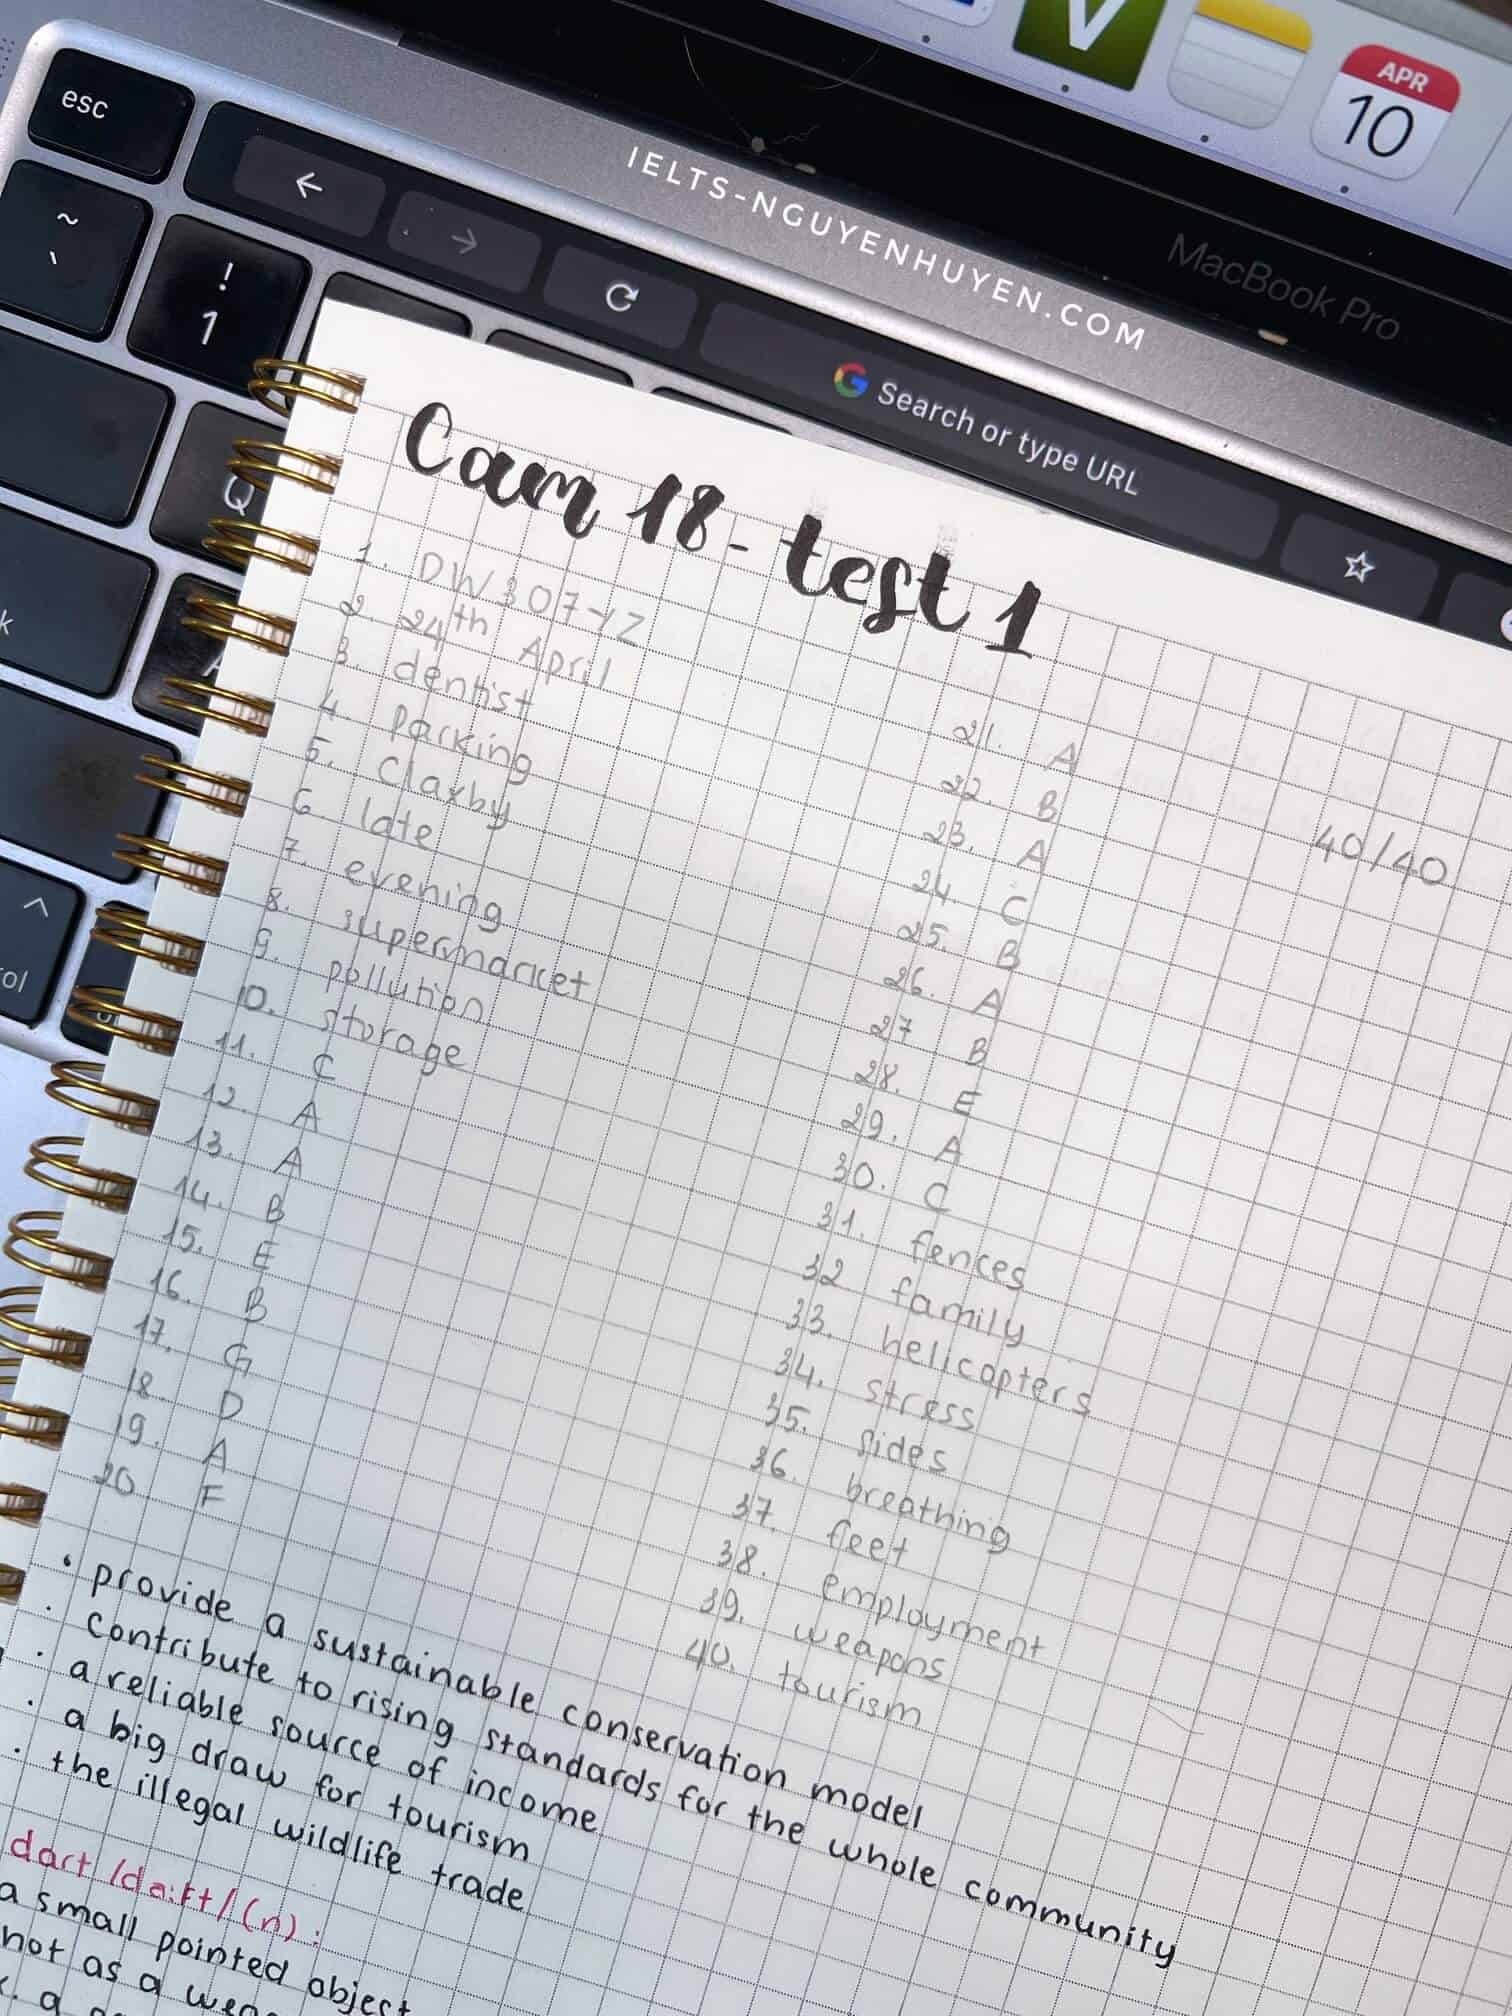 APR
10
esc
IELTS-NGUYENHUYEN.COM
MacBook Pro
~
`
!
1
Search or type URL
Q
Cam 18 - test 1
1. DW307YZ
2. 24th April
3. dentist
4. parking
5. Claxby
6 late
7. evening
8. supermarket
9. pollution
10. storage
11. C
12. A
13. A
14. B
15. E
16. B
17. G
18. D
19. A
20 F
21. A
22. B
23. A
24. C
25. B
26. A
27 B
28. E
29. A
30. C
31. fences
32 family
33. helicopters
34. stress
35. sides
36. breathing
37. feet
38. employment
39. weapons
40. tourism
40/40
• provide a sustainable conservation model
• Contribute to rising standards for the whole community
• a reliable source of income
• a big draw for tourism
• the illegal wildlife trade
dart (n):
a small pointed object
not as a
a